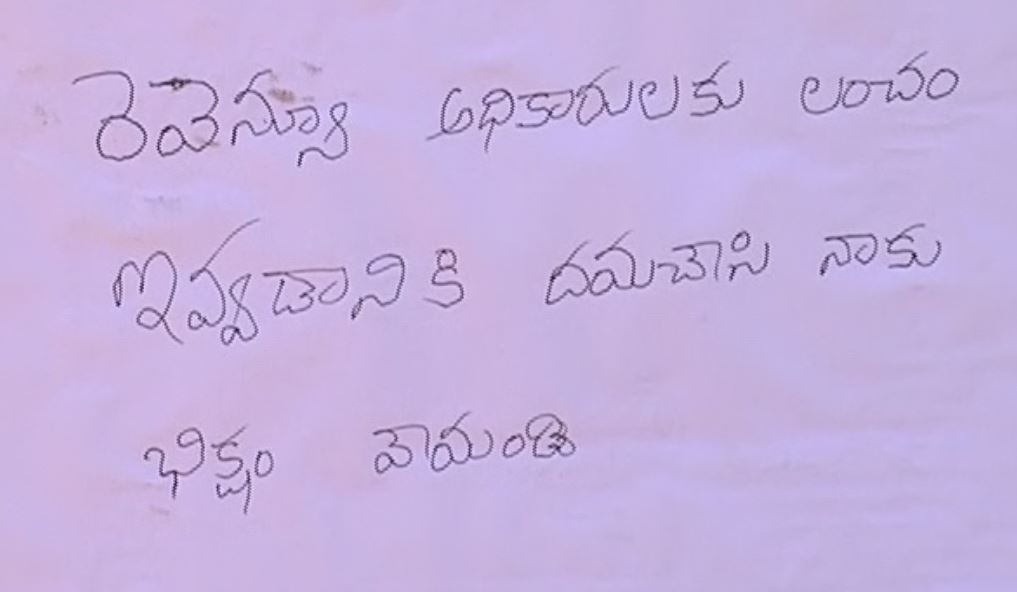 రెవెన్యూ అధికారులకు లంచం
ఇవ్వడానికి దయచేసి నాకు
భిక్షం వేయండి